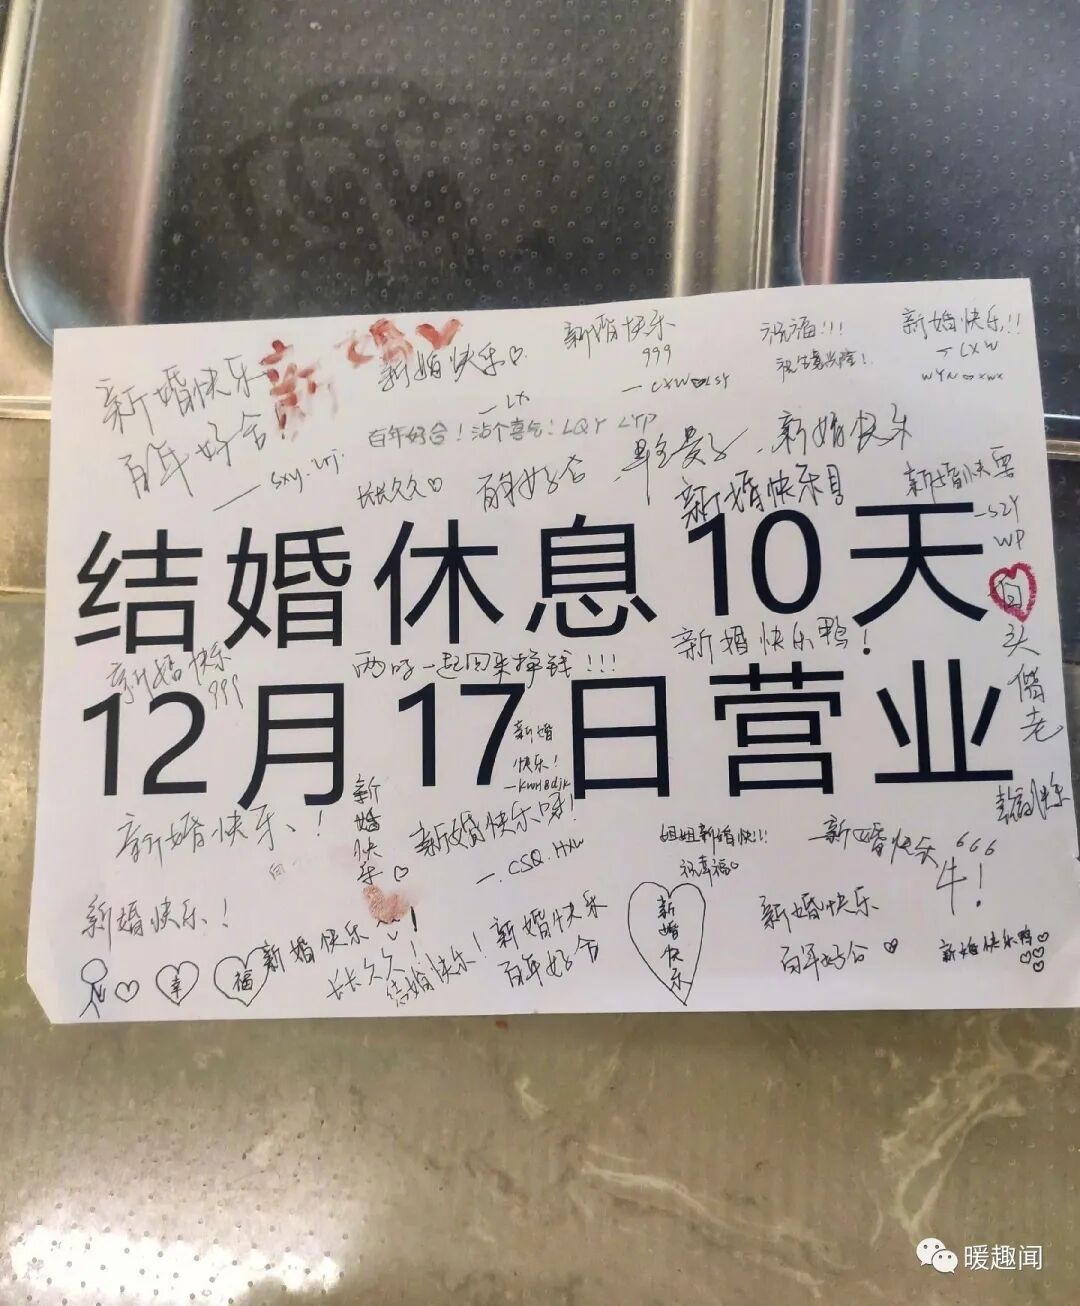 新婚快乐
百年好合!
— sxy. zrj.
新婚
新婚快乐
— LX
新婚快乐
999
— LXW LSY
祝福!!!
祝生意兴隆!
新婚快乐!!
— LXW
WYN
百年好合!沾个喜气! LQY LYP
早生贵子
新婚快乐
长长久久
百年好合
新婚快乐
— SZY
WP
结婚休息10天
白头偕老
新婚快乐
999
两口一起回来挣钱!!!
新婚快乐鸭!
12月17日营业
新婚
快乐!
新婚快乐
新婚快乐、!
新婚快乐呀!
— CSQ. HXW
姐姐新婚快!!
祝幸福
新婚快乐
666
牛!
新婚快乐!
幸
福
新婚快乐
长长久久!
结婚快乐!
新婚快乐
百年好合
新婚快乐
新婚快乐
百年好合
新婚快乐鸭
暖趣闻